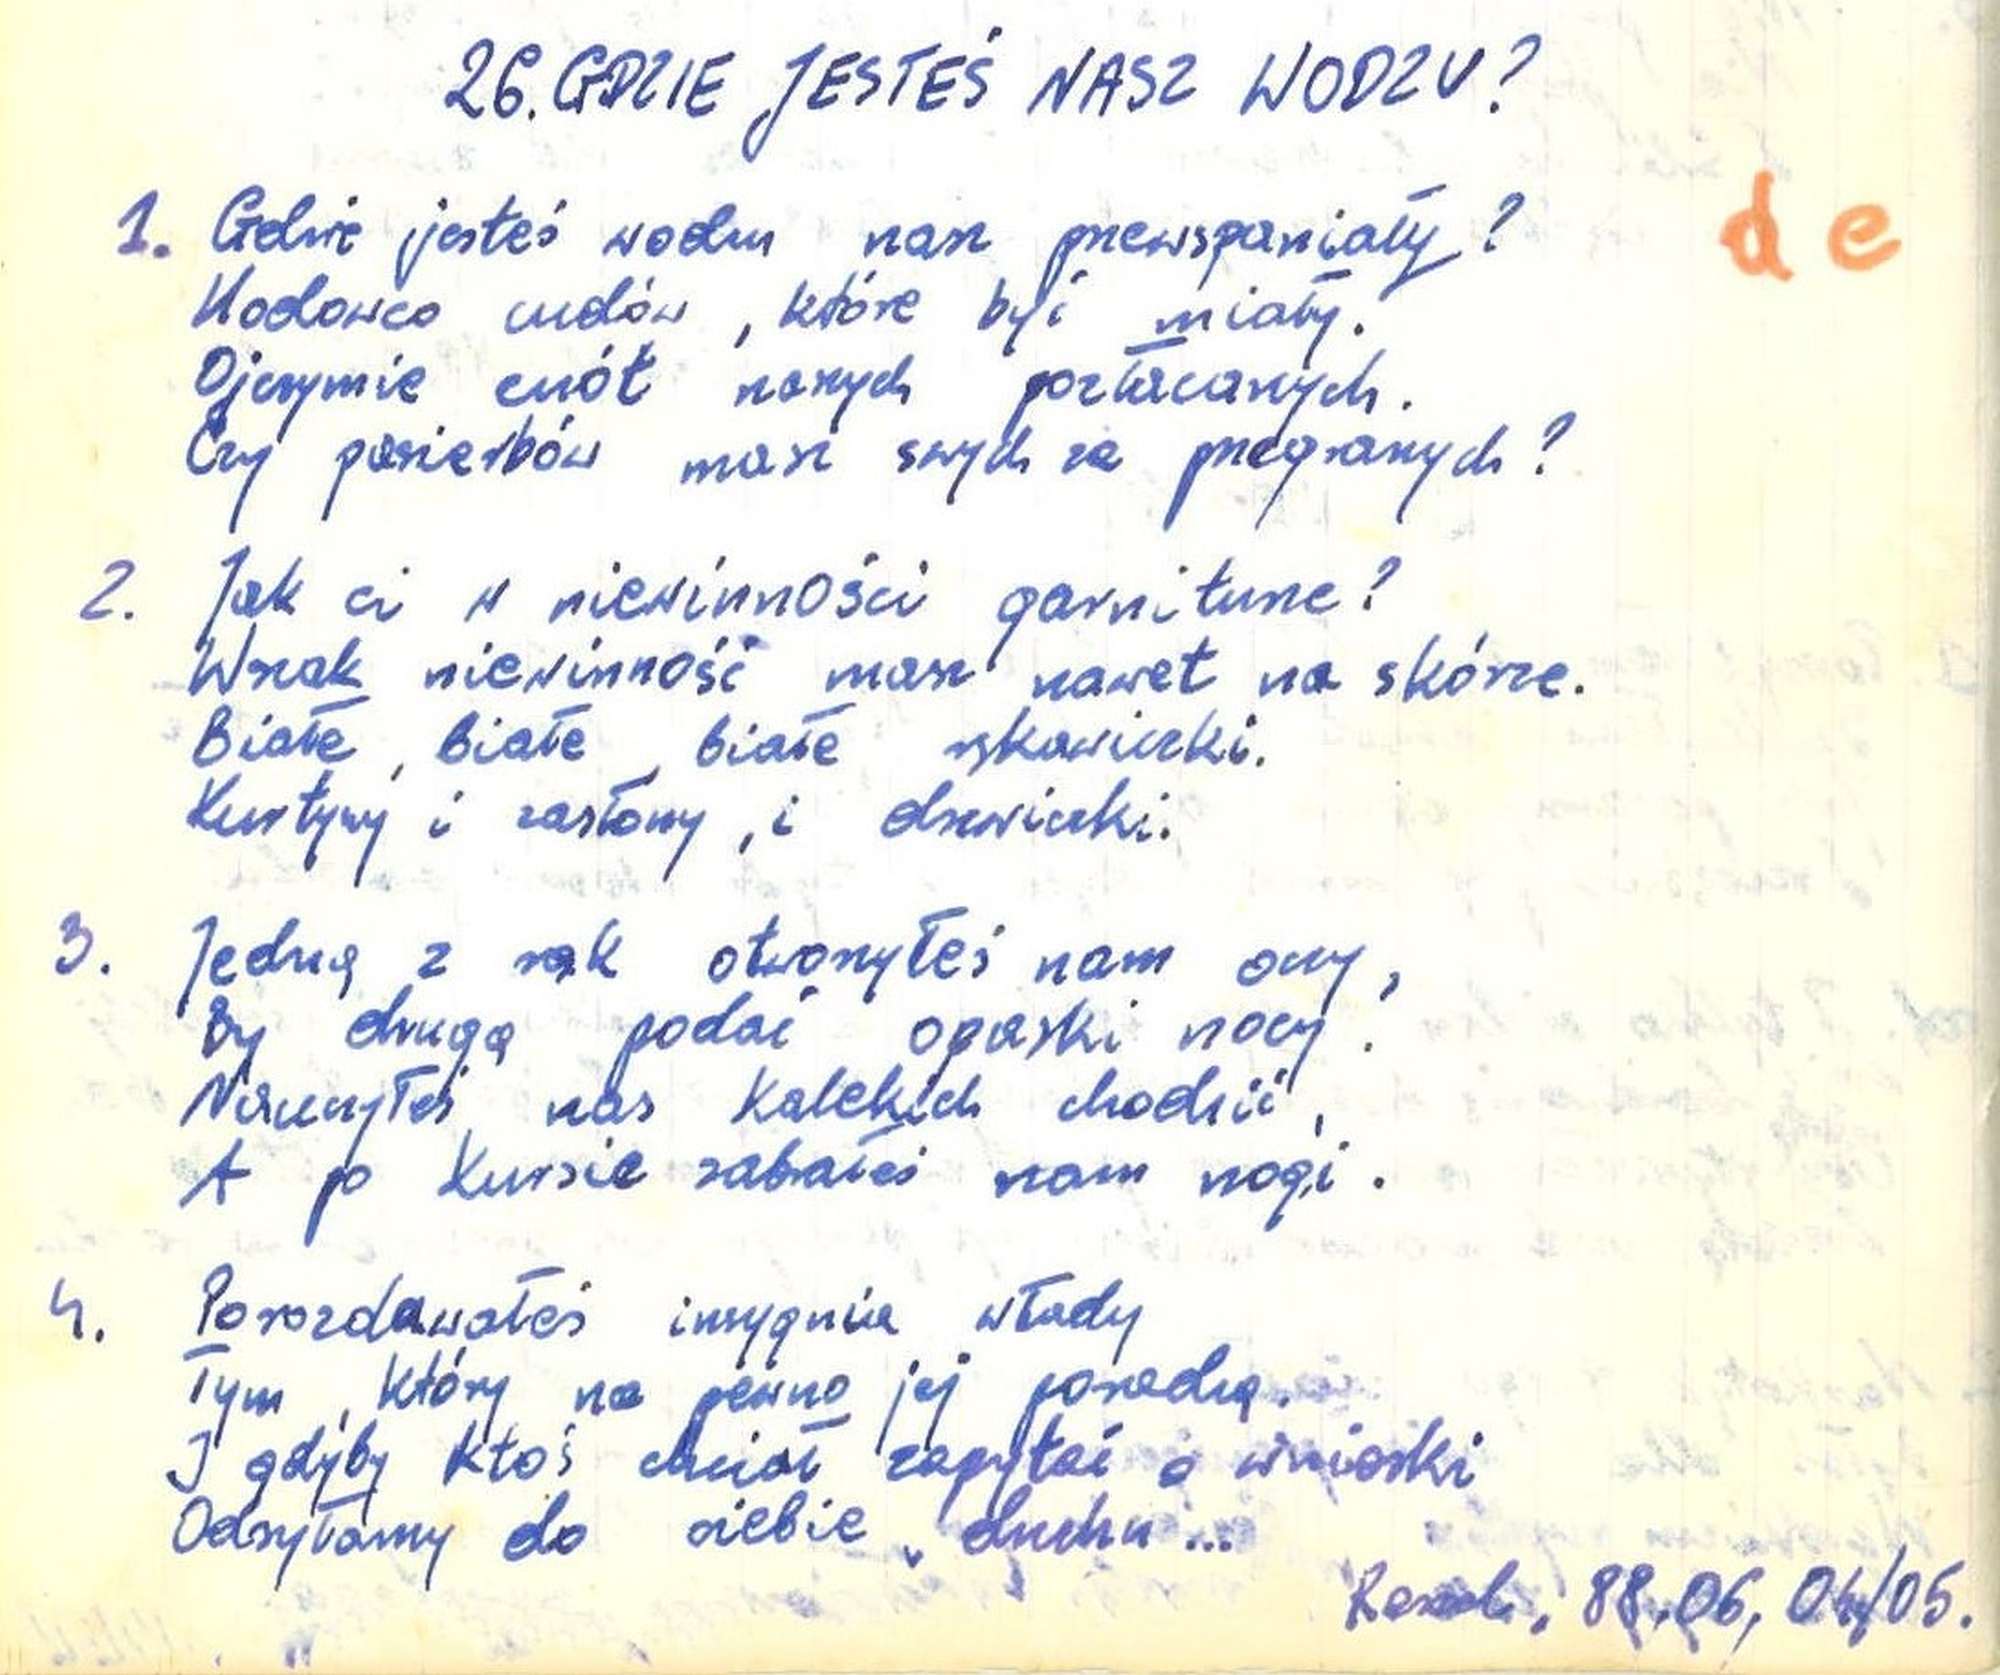 26. GDZIE JESTEŚ NASZ WODZU?
d e
1. Gdzie jesteś wodzu nasz przewspaniały?
Hodowco cudów, które być miały.
Ojczymie cnót naszych pozłacanych.
Czy pasierbów masz swych za przegranych?
2. Jak ci w niewinności garniturze?
Wszak niewinność masz nawet na skórze.
Białe, białe, białe rękawiczki.
Kurtyny i zasłony, i drzwiczki.
3. Jedną z rąk otworzyłeś nam oczy,
By drugą podać opaski nocy.
Nauczyłeś nas kalekich chodzić,
A po kursie zabrałeś nam nogi.
4. Porozdawałeś insygnia władzy
Tym, którzy na pewno jej poradzą.
I gdyby ktoś chciał zapytać o wnioski
Odsyłamy do siebie, duchu...
88.06, 04/05.